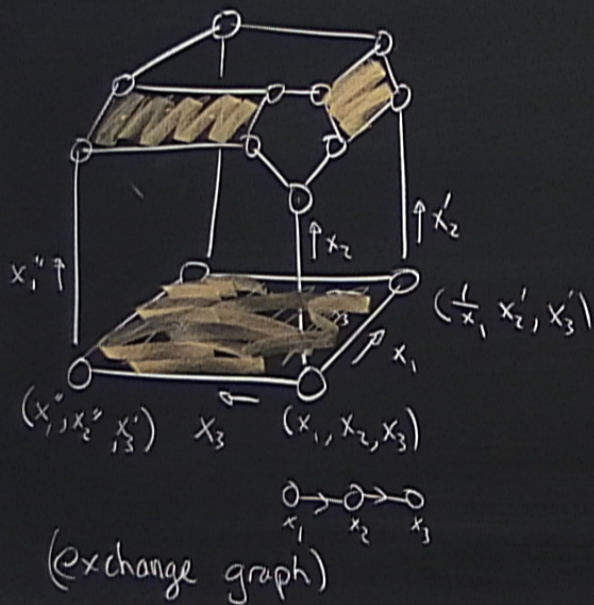 x₁" ↑
↑ x₂
↑ x₂'
(1/x₁ x₂', x₃')
→ x₁
(x₁", x₂", x₃") x₃ ← (x₁, x₂, x₃)
x₁ → x₂ → x₃
(exchange graph)